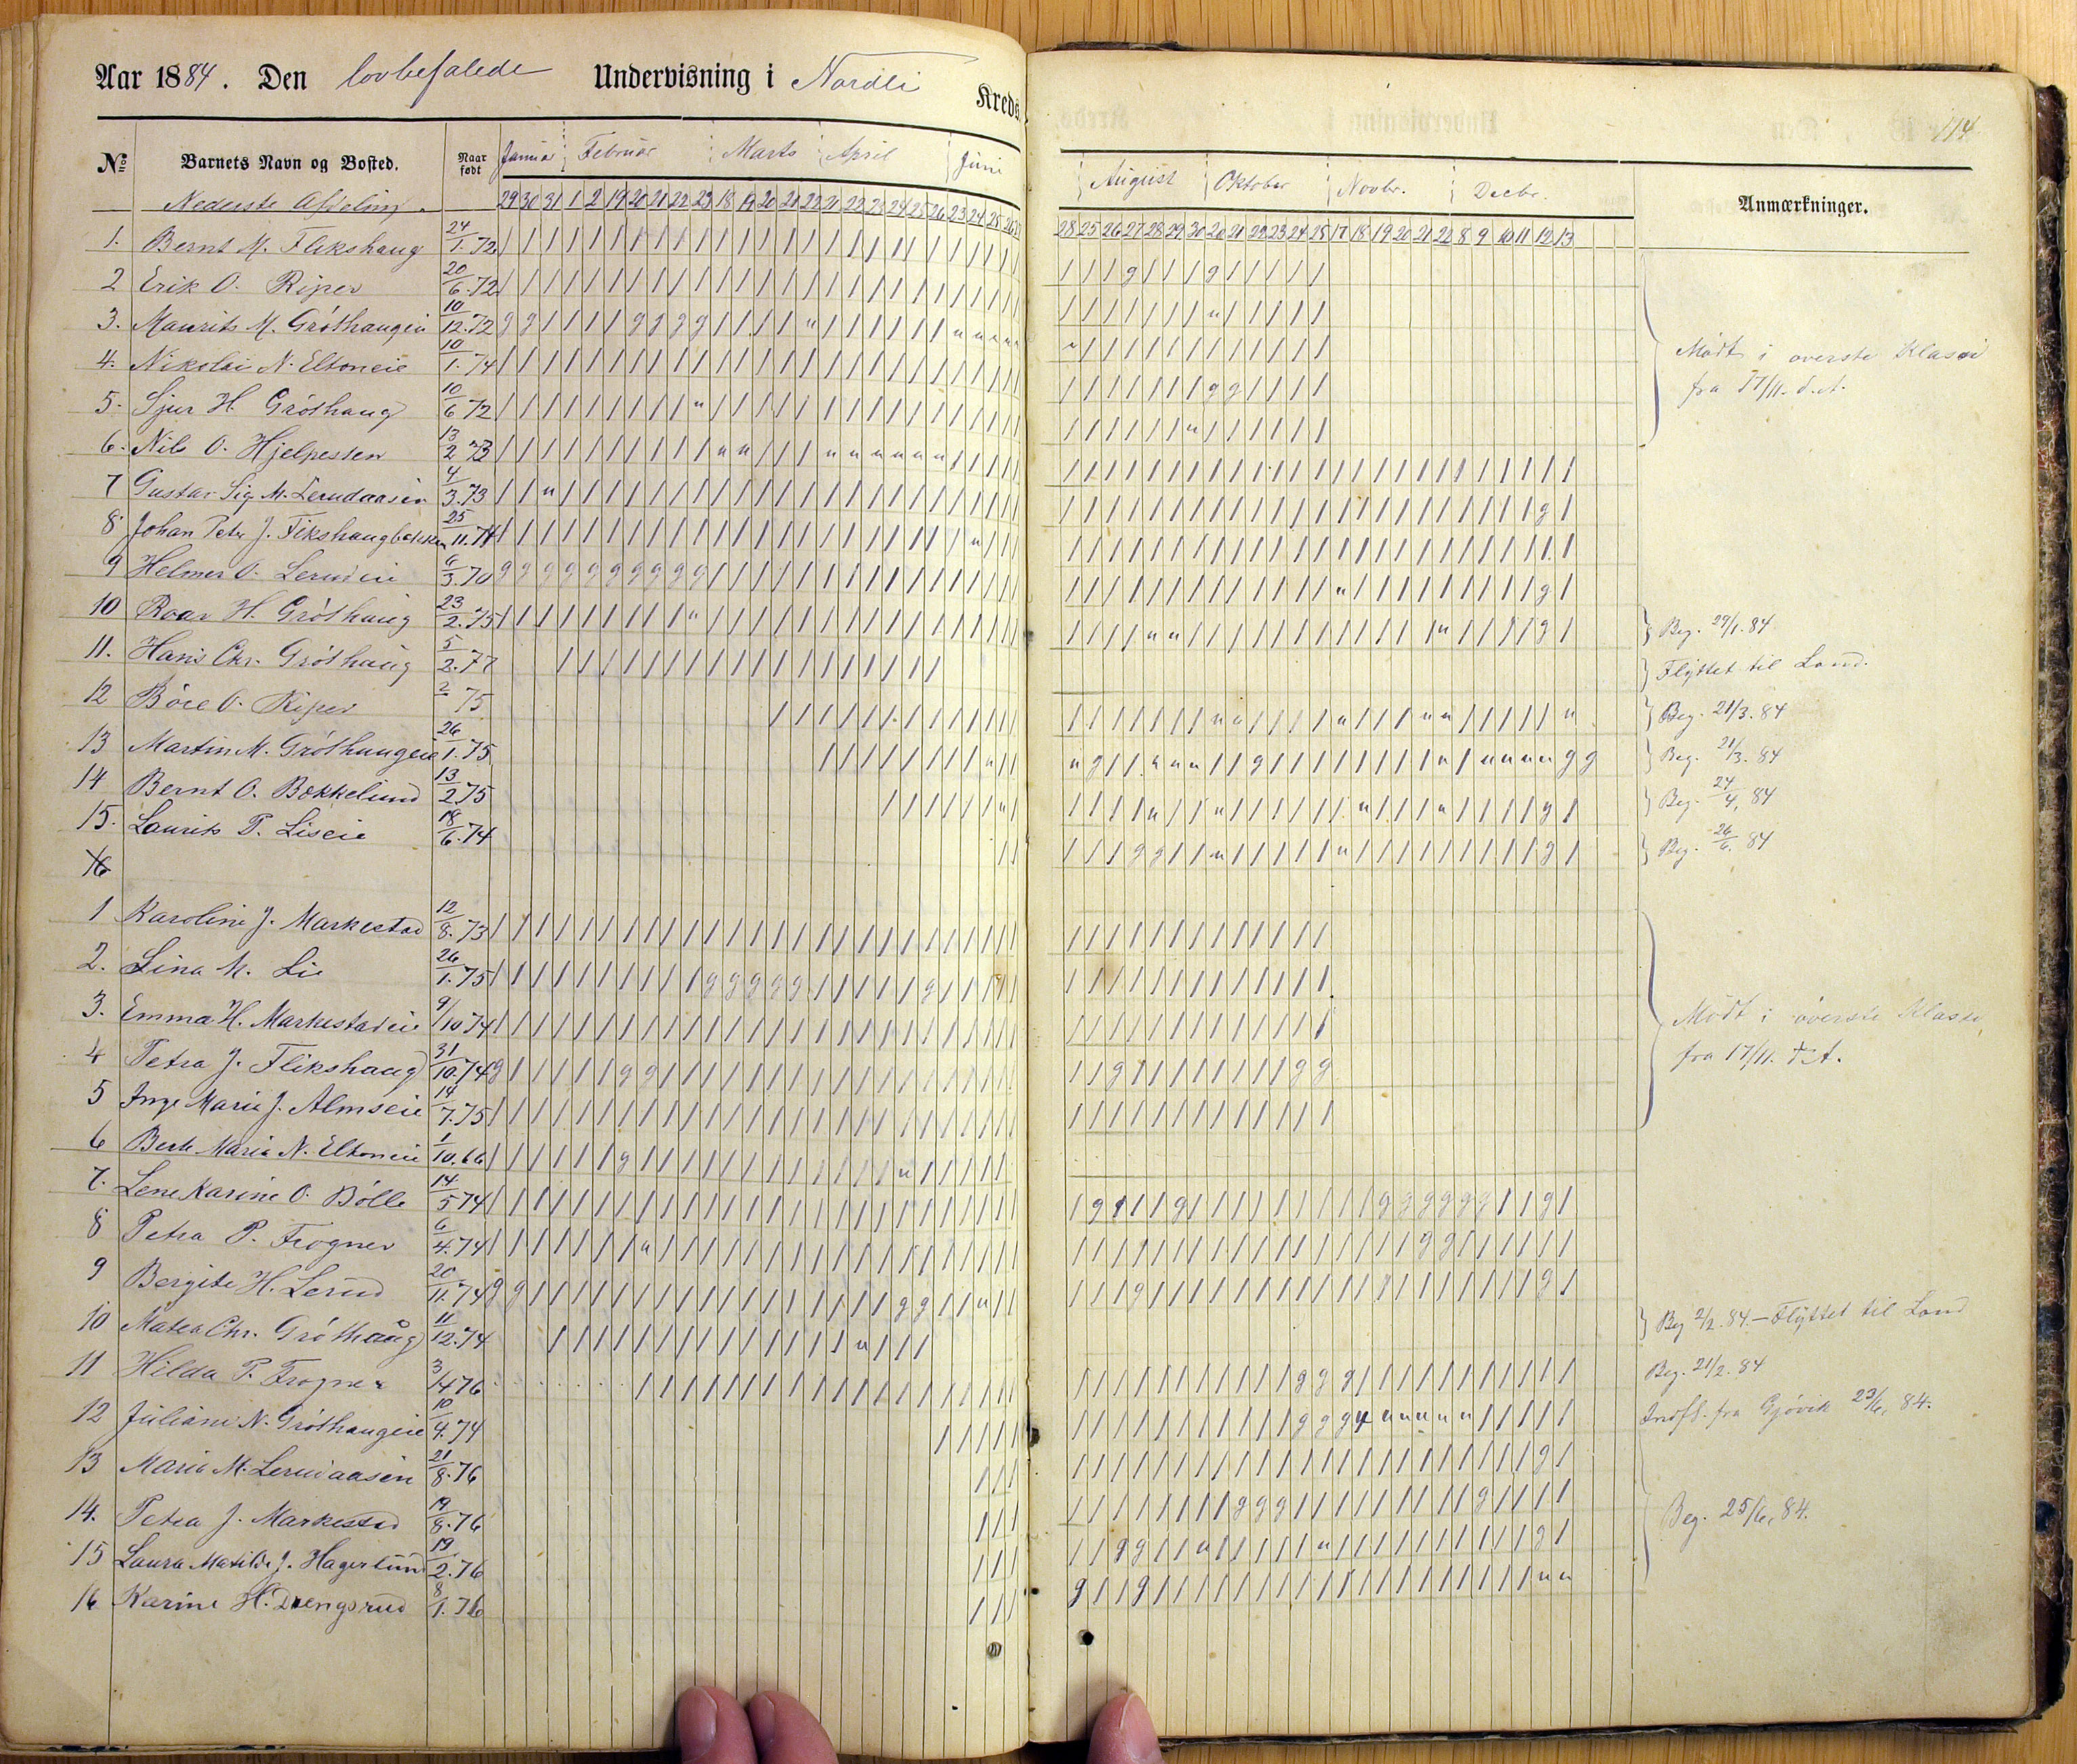 Aar 1884. Den lovbefalede Undervisning i Nordli Kreds.
114
No Barnets Navn og Bosted. Naar født Januar Februar Marts April Juni August Oktober Novbr. Decbr. Anmærkninger.
Nederste Afdeling.
29 30 31 1 2 19 20 21 22 23 18 19 20 21 22 21 22 23 24 25 26 23 24 25 26 27 28 25 26 27 28 29 30 20 21 22 23 24 25 17 18 19 20 21 22 8 9 10 11 12 13
1. Bernt M. Flikshaug 24/1.72
2 Erik O. Riper 20/6.72
3. Maurits M. Gróthaugen 10/12.72
4. Nikolai N. Eltoneie 10/1.74
5. Sjur H. Gróthaug 10/6 72
Mødt i øverste Klasse
fra 17/11. d.A.
6. Nils O. Hjelpesten 13/2 73
7 Gustav Sig. M. Lerudaasen 4/3.73
8 Johan Petr J. Flikshaugbakken 25/11.74
9 Helmer O. Lerudeie 6/3.70
10 Roar H. Gróthaug 23/2.75 Beg. 29/1.84
11. Hans Chr. Gróthaug 5/2.77 Flyttet til Land.
12 Bóre O. Riper 2 75 Beg. 21/3.84
13 Martin M. Gróthaugeie 26/1.75 Beg. 21/3.84
14 Bernt O. Bekkelund 13/2.75 Beg. 24/4.84
15. Laurits P. Liseie 18/6.74 Beg. 26/6.84
16
1 Karoline J. Markestad 12/8.73
2. Lina M. Lie 26/1.75
3. Emma H. Markestadeie 9/10 74
4 Petra J. Flikshaug 31/10.74
5 Inge Marie J. Almseie 14/7.75
Mødt i øverste Klasse
fra 17/11. d.A.
6 Berte Maria N. Eltoneie 1/10.66
7. Lene Karine O. Bólle 14/5 74
8 Petra P. Frogner 6/4.74
9 Bergite H. Lerud 20/11.74
10 Matea Chr. Gróthaug 11/12.74 Beg 2/2.84.—Flyttet til Land
11 Hilda P. Frogner 3/4 76 Beg. 21/2.84
12 Juliane N. Gróthaugeie 10/4.74 Indfl. fra Gjøvik 23/6.84.
13 Maria M. Lerudaasen 21/8.76
14. Petra J. Markestad 19/8.76
Beg. 25/6.84.
15 Laura Matilde J. Hagerlund 19/2.76
16 Karine H. Drengsrud 8/1.76